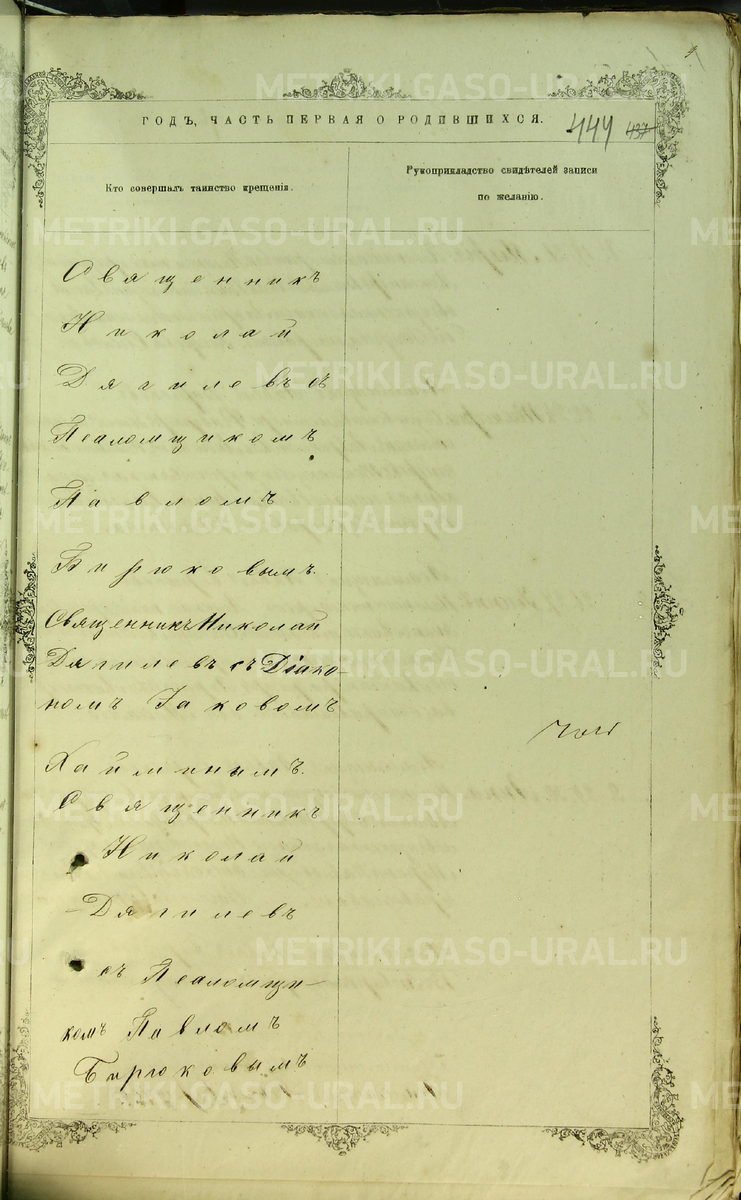 ГОДЪ, ЧАСТЬ ПЕРВАЯ О РОДИВШИХСЯ.
444 437
Кто совершалъ таинство крещенія.
Рукоприкладство свидѣтелей записи
по желанію.
Священникъ
Николай
Дягилевъ съ
Псаломщикомъ
Павломъ
Бирюковымъ.
Священникъ Николай
Дягилевъ съ Діако-
номъ Іаковомъ
Хайминымъ.
Священникъ
Николай
Дягилевъ
съ Псаломщи-
комъ Павломъ
Бирюковымъ
METRIKI.GASO-URAL.RU